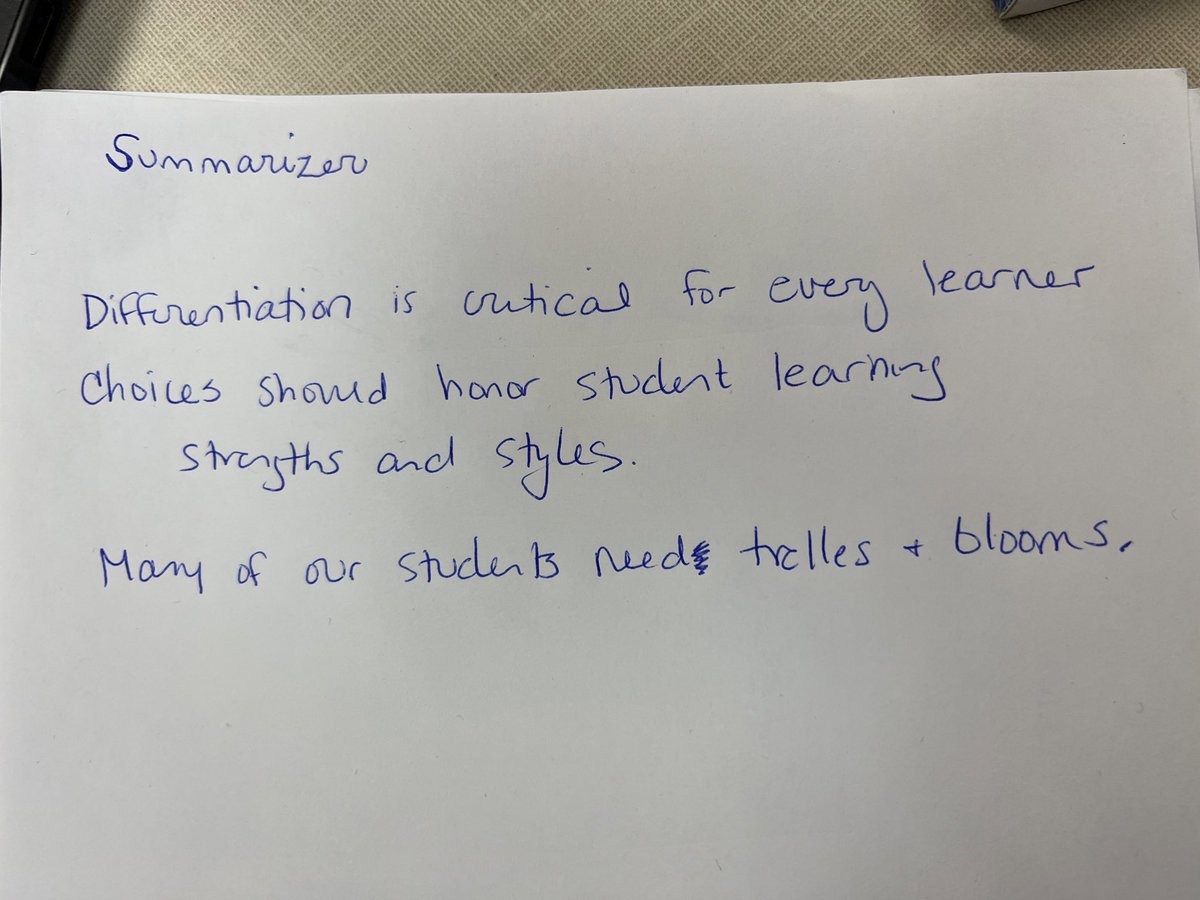 Summarizer
Differentiation is critical for every learner
Choices should honor student learning
strengths and styles.
Many of our students need trelles + blooms.